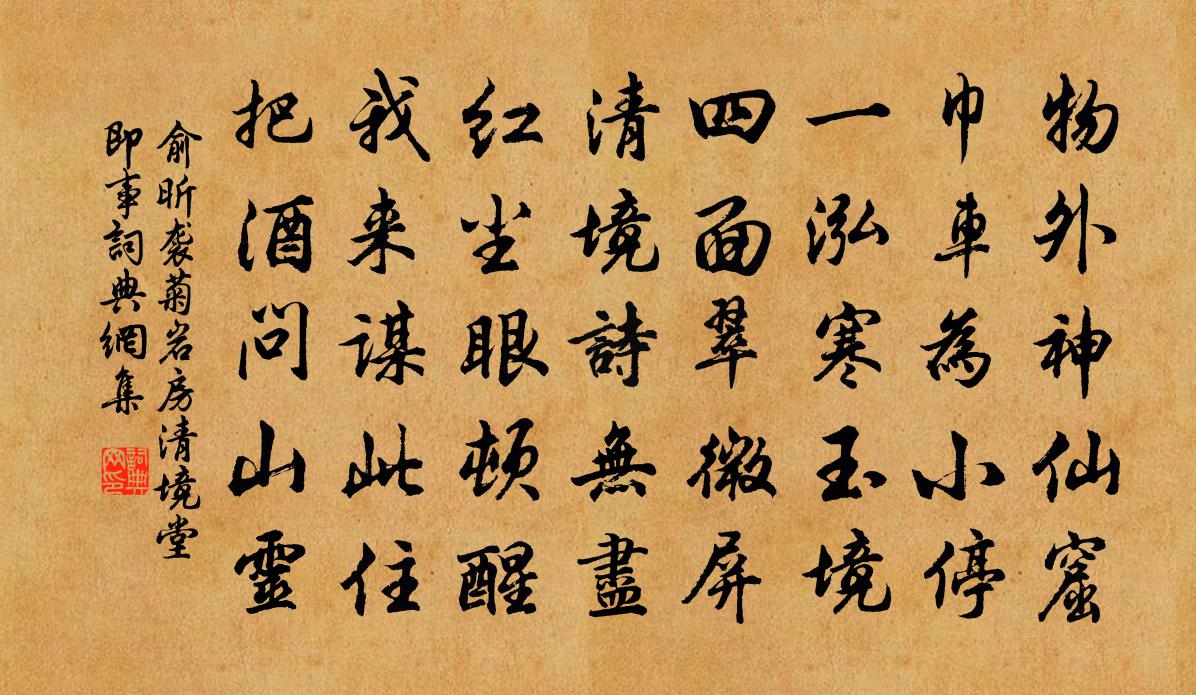 物外神仙窟
巾車為小停
一泓寒玉境
四面翠微屏
清境詩無盡
红尘眼顿醒
我来谋此住
把酒问山靈
俞昕袭菊岩房清境堂
即事詞典網集
詞典
网印